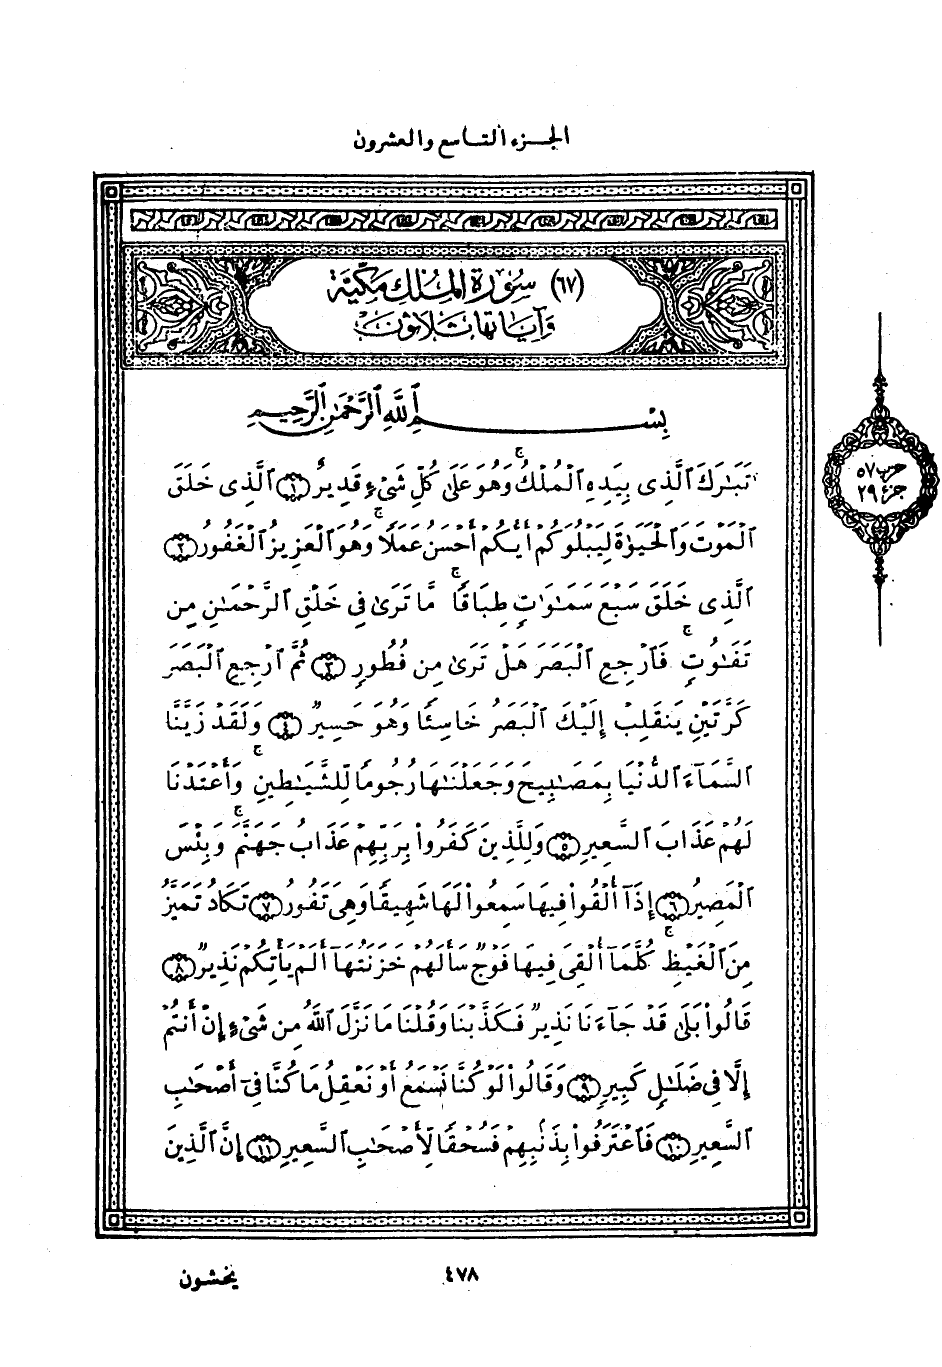 الجزء التاسع والعشرون
(٦٧) سُورَة المُلك مَكّيَّة
وَآيَاتها ثَلاثون
بِسْمِ ٱللَّهِ ٱلرَّحْمَٰنِ ٱلرَّحِيمِ
تَبَٰرَكَ ٱلَّذِى بِيَدِهِ ٱلْمُلْكُ ۚ وَهُوَ عَلَىٰ كُلِّ شَىْءٍ قَدِيرٌ ﴿١﴾ ٱلَّذِى خَلَقَ
ٱلْمَوْتَ وَٱلْحَيَوٰةَ لِيَبْلُوَكُمْ أَيُّكُمْ أَحْسَنُ عَمَلًا ۚ وَهُوَ ٱلْعَزِيزُ ٱلْغَفُورُ ﴿٢﴾
ٱلَّذِى خَلَقَ سَبْعَ سَمَٰوَٰتٍ طِبَاقًا ۚ مَّا تَرَىٰ فِى خَلْقِ ٱلرَّحْمَٰنِ مِن
تَفَٰوُتٍ ۚ فَٱرْجِعِ ٱلْبَصَرَ هَلْ تَرَىٰ مِن فُطُورٍ ﴿٣﴾ ثُمَّ ٱرْجِعِ ٱلْبَصَرَ
كَرَّتَيْنِ يَنقَلِبْ إِلَيْكَ ٱلْبَصَرُ خَاسِئًا وَهُوَ حَسِيرٌ ﴿٤﴾ وَلَقَدْ زَيَّنَّا
ٱلسَّمَآءَ ٱلدُّنْيَا بِمَصَٰبِيحَ وَجَعَلْنَٰهَا رُجُومًا لِّلشَّيَٰطِينِ ۚ وَأَعْتَدْنَا
لَهُمْ عَذَابَ ٱلسَّعِيرِ ﴿٥﴾ وَلِلَّذِينَ كَفَرُوا۟ بِرَبِّهِمْ عَذَابُ جَهَنَّمَ ۚ وَبِئْسَ
ٱلْمَصِيرُ ﴿٦﴾ إِذَآ أُلْقُوا۟ فِيهَا سَمِعُوا۟ لَهَا شَهِيقًا وَهِىَ تَفُورُ ﴿٧﴾ تَكَادُ تَمَيَّزُ
مِنَ ٱلْغَيْظِ ۚ كُلَّمَآ أُلْقِىَ فِيهَا فَوْجٌ سَأَلَهُمْ خَزَنَتُهَآ أَلَمْ يَأْتِكُمْ نَذِيرٌ ﴿٨﴾
قَالُوا۟ بَلَىٰ قَدْ جَآءَنَا نَذِيرٌ فَكَذَّبْنَا وَقُلْنَا مَا نَزَّلَ ٱللَّهُ مِن شَىْءٍ إِنْ أَنتُمْ
إِلَّا فِى ضَلَٰلٍ كَبِيرٍ ﴿٩﴾ وَقَالُوا۟ لَوْ كُنَّا نَسْمَعُ أَوْ نَعْقِلُ مَا كُنَّا فِىٓ أَصْحَٰبِ
ٱلسَّعِيرِ ﴿١٠﴾ فَٱعْتَرَفُوا۟ بِذَنۢبِهِمْ فَسُحْقًا لِّأَصْحَٰبِ ٱلسَّعِيرِ ﴿١١﴾ إِنَّ ٱلَّذِينَ
حزب ٥٧
جزء ٢٩
٤٧٨
يخشون